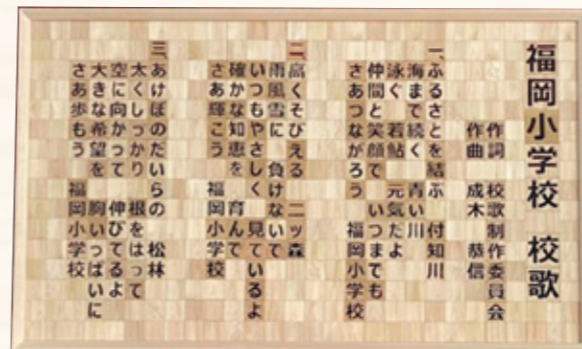 福岡小学校 校歌
作詞 校歌制作委員会
作曲 成木 恭信
一、ふるさとを結ぶ 付知川
海まで続く 青い川
泳ぐ 若鮎 元気だよ
仲間と笑顔で いつまでも
さあつながろう 福岡小学校
二、高くそびえる 二ッ森
雨風雪に 負けないで
いつもやさしく 見ているよ
確かな知恵を 育んで
さあ輝こう 福岡小学校
三、あけぼのだいらの 松林
太くしっかり 根をはって
空に向かって 伸びてるよ
大きな希望を 胸いっぱいに
さあ歩もう 福岡小学校